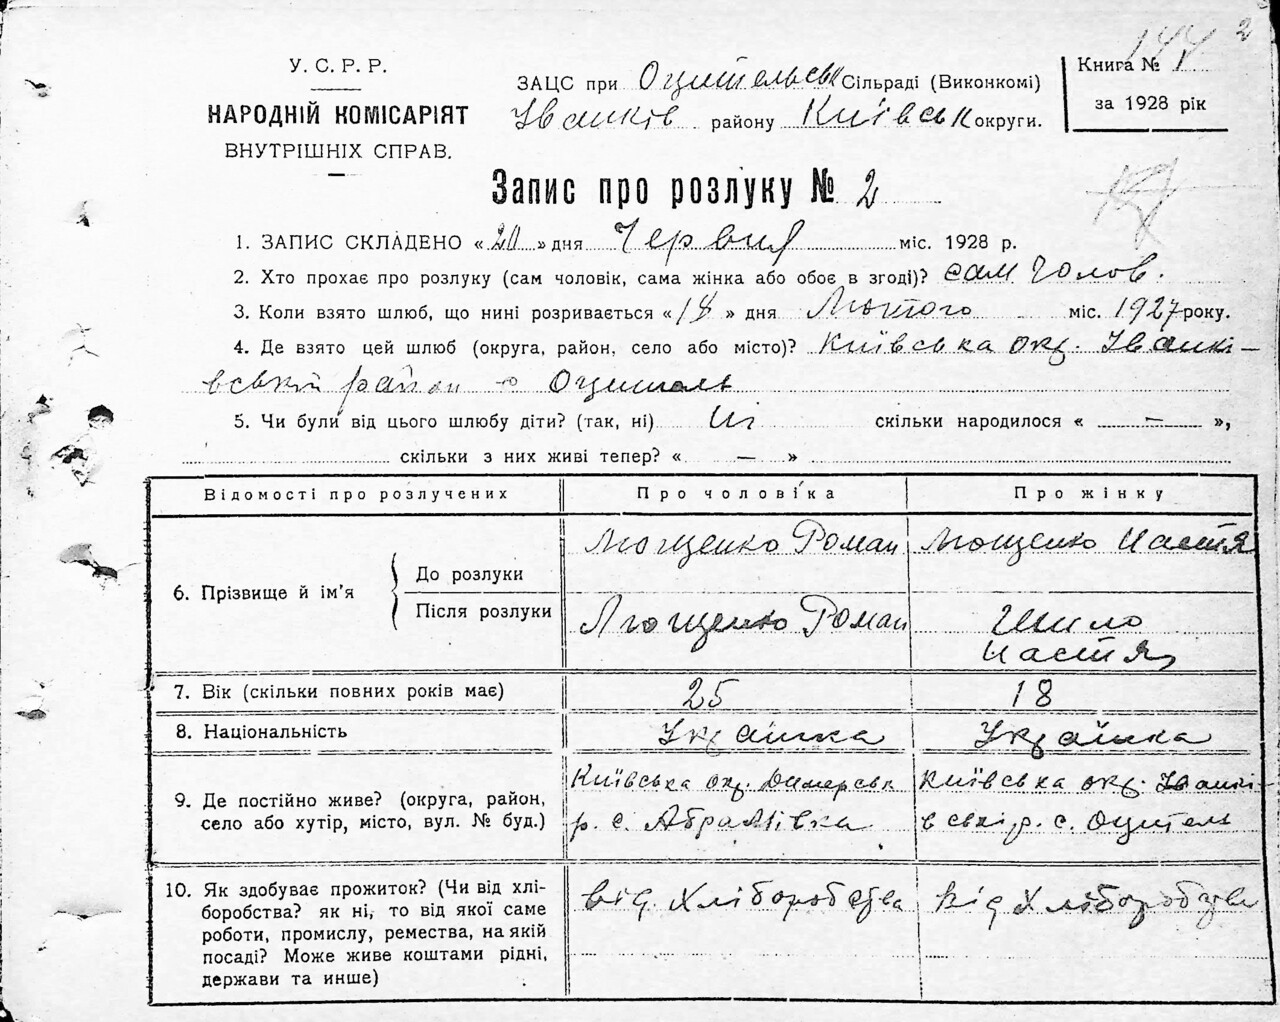 144 2
У. С. Р. Р.
НАРОДНІЙ КОМІСАРІЯТ
ВНУТРІШНІХ СПРАВ.
ЗАЦС при Оцительськ Сільраді (Виконкомі)
Іванків району Київськ округи.
Книга № 1
за 1928 рік
Запис про розлуку № 2
1. ЗАПИС СКЛАДЕНО «20» дня Червня міс. 1928 р.
2. Хто прохає про розлуку (сам чоловік, сама жінка або обоє в згоді)? сам чолов.
3. Коли взято шлюб, що нині розривається «18» дня Лютого міс. 1927 року.
4. Де взято цей шлюб (округа, район, село або місто)? Київська окр. Іванкі-
вській район Оцитель
5. Чи були від цього шлюбу діти? (так, ні) Ні скільки народилося « — »,
скільки з них живі тепер? « — »
Відомості про розлучених Про чоловіка Про жінку
6. Прізвище й ім'я
До розлуки Мощенко Роман Мощенко Настя
Після розлуки Мощенко Роман Шило
Настя
7. Вік (скільки повних років має) 25 18
8. Національність Українка Українка
9. Де постійно живе? (округа, район,
село або хутір, місто, вул. № буд.)
Київська окр. Димерськ
р. с. Абрамівка
Київська окр. Іванкі-
вські р. с. Оцитель
10. Як здобуває прожиток? (Чи від хлі-
боробства? як ні, то від якої саме
роботи, промислу, ремества, на якій
посаді? Може живе коштами рідні,
держави та инше)
від. Хліборобства
Від Хліборобства